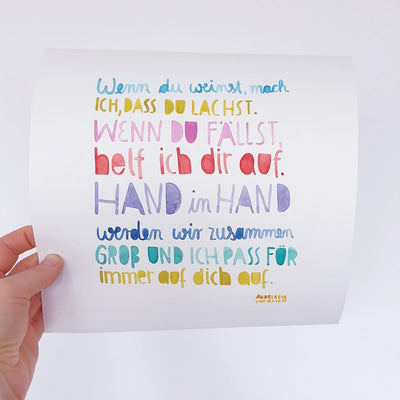 Wenn du weinst, mach
ICH, DASS DU LACHST.
WENN DU FÄLLST,
helf ich dir auf.
HAND in HAND
werden wir zusammen
GROß UND ICH PASS FÜR
immer auf dich auf.